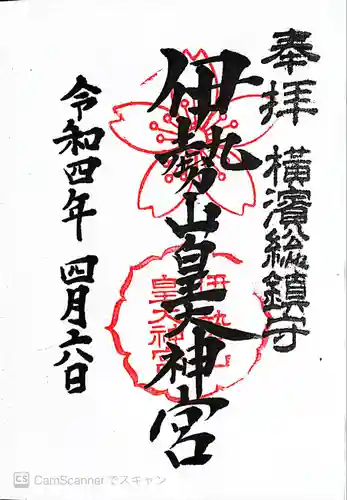 奉拝 横濱総鎮守
伊勢山皇大神宮
伊勢山
皇大神宮
令和四年 四月六日
CS CamScanner でスキャン